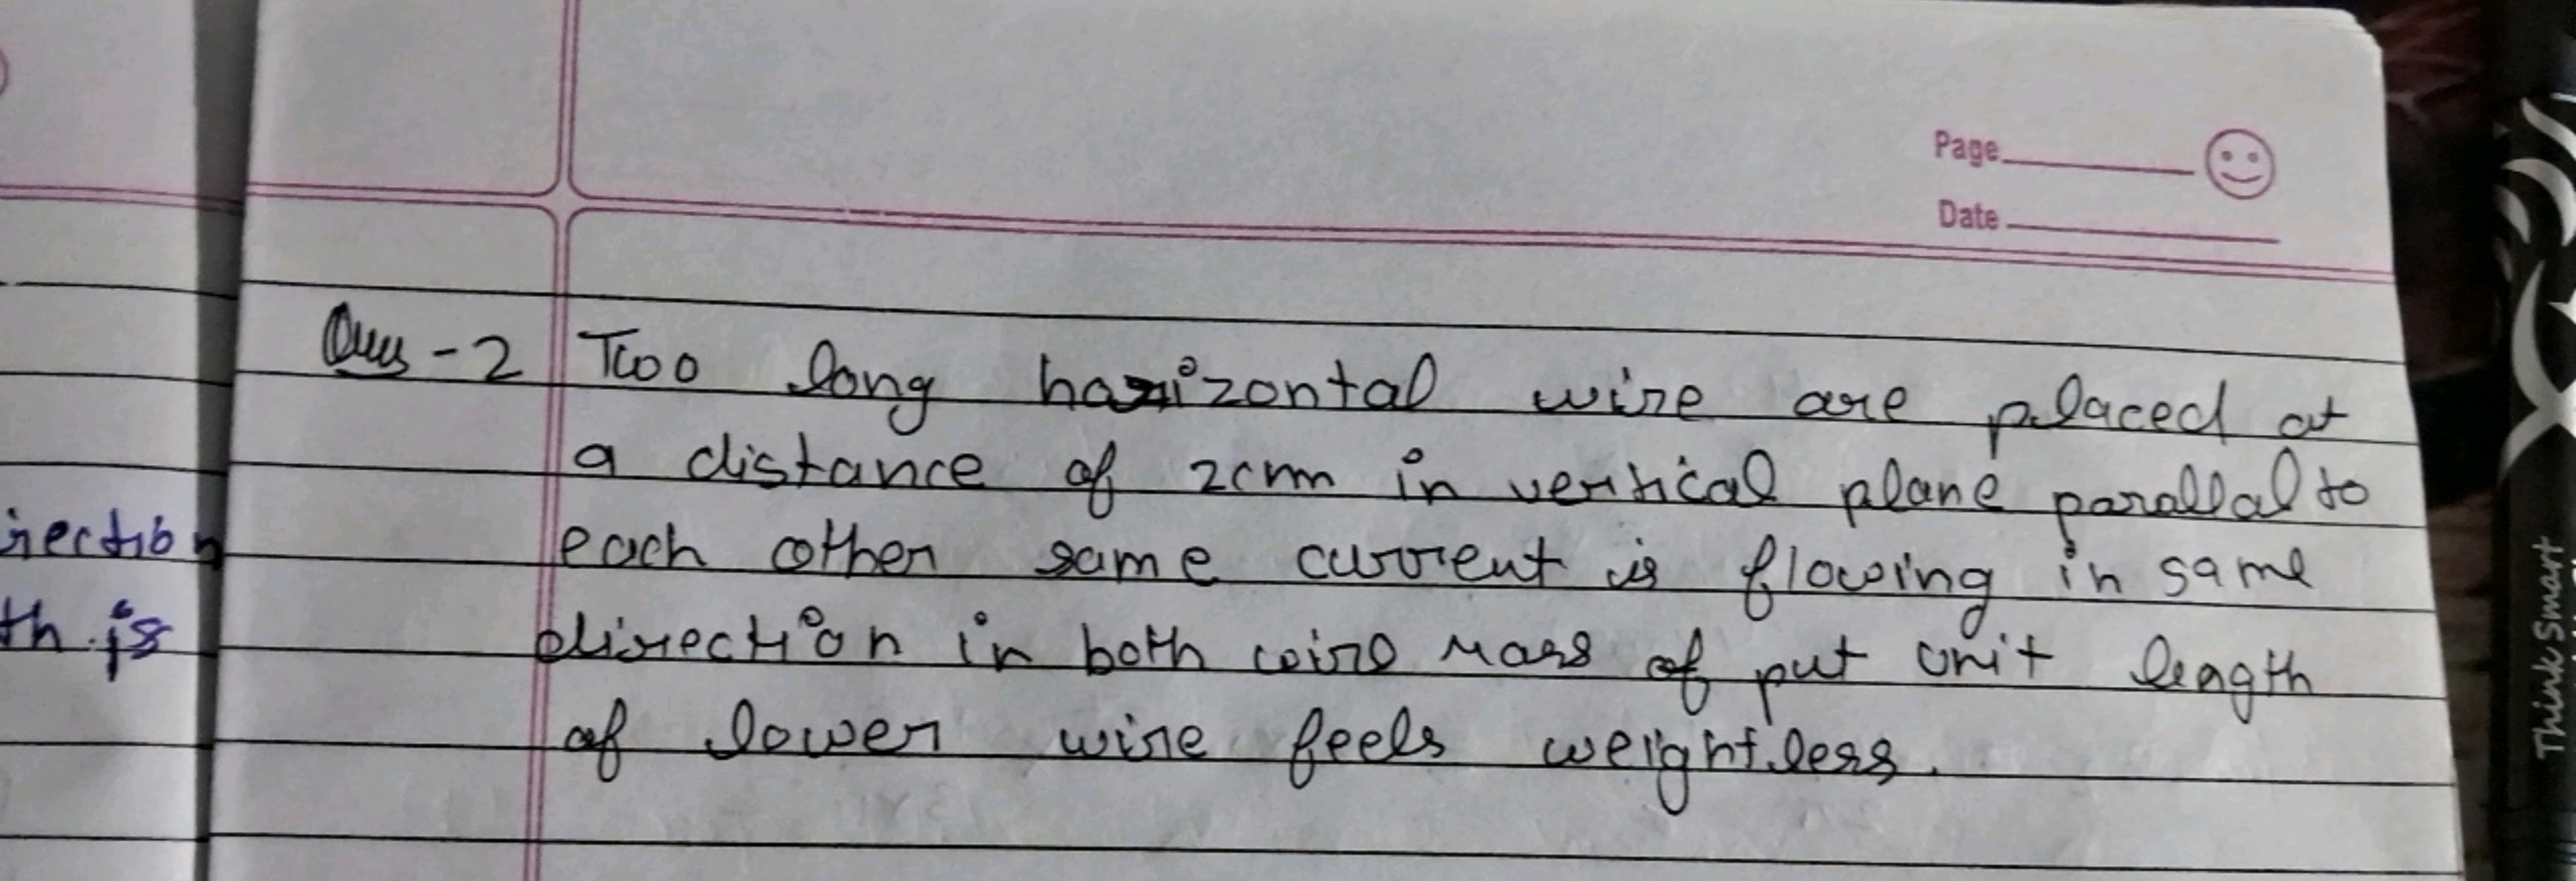 Page
Date
Ques-2 Two long horizontal wire are placed at
a distance of 2cm in vertical plane parallal to
each other same current is flowing in same
direction in both wire mass of put unit length
of lower wire feels weightless.
irection
th is
Think Smart